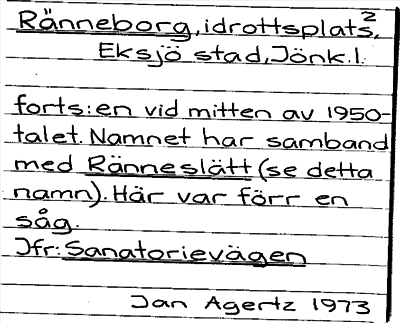 Ränneborg, idrottsplats, 2
Eksjö stad, Jönk. l.
forts: en vid mitten av 1950-
talet. Namnet har samband
med Ränneslätt (se detta
namn). Här var förr en
såg.
Jfr: Sanatorievägen
Jan Agertz 1973